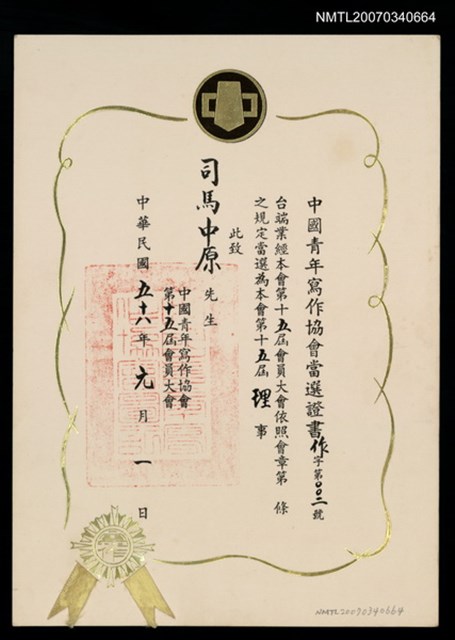 NMTL20070340664
中國青年寫作協會當選證書作字第〇〇二號
台端業經本會第十五屆會員大會依照會章第 條
之規定當選為本會第十五屆理事
此致
司馬中原先生
中國青年寫作協會
第十五屆會員大會
中華民國五十六年元月一日
NMTL20070340664